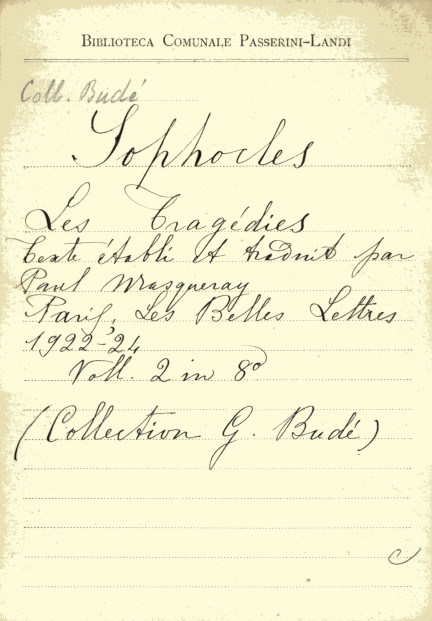 BIBLIOTECA COMUNALE PASSERINI-LANDI
Coll. Budé
Sophocles
Les Tragédies
Texte établi et traduit par
Paul Masqueray
Paris, Les Belles Lettres
1922-'24
Voll. 2 in 8°
(Collection G. Budé)